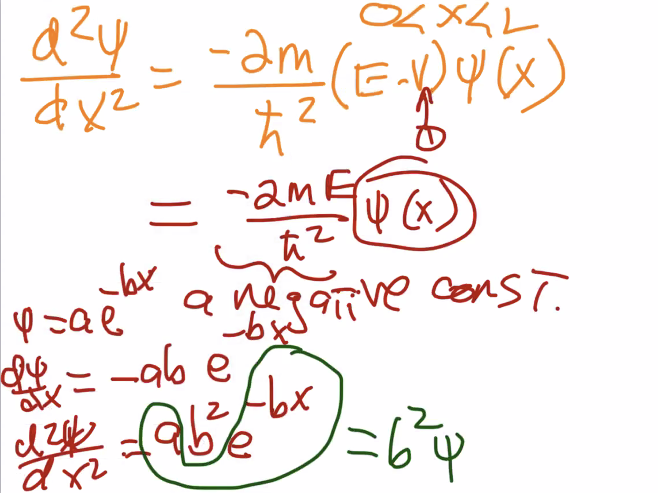 0<x<L
d²ψ/dx² = -2m/ħ² (E-V) ψ(x)
0
= -2mE/ħ² ψ(x)
a negative const.
ψ = ae^-bx
dψ/dx = -ab e^-bx
d²ψ/dx² = ab²e^-bx = b²ψ